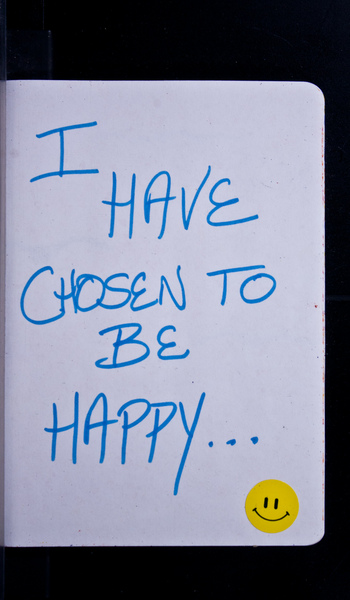 I
HAVE
CHOSEN TO
BE
HAPPY...